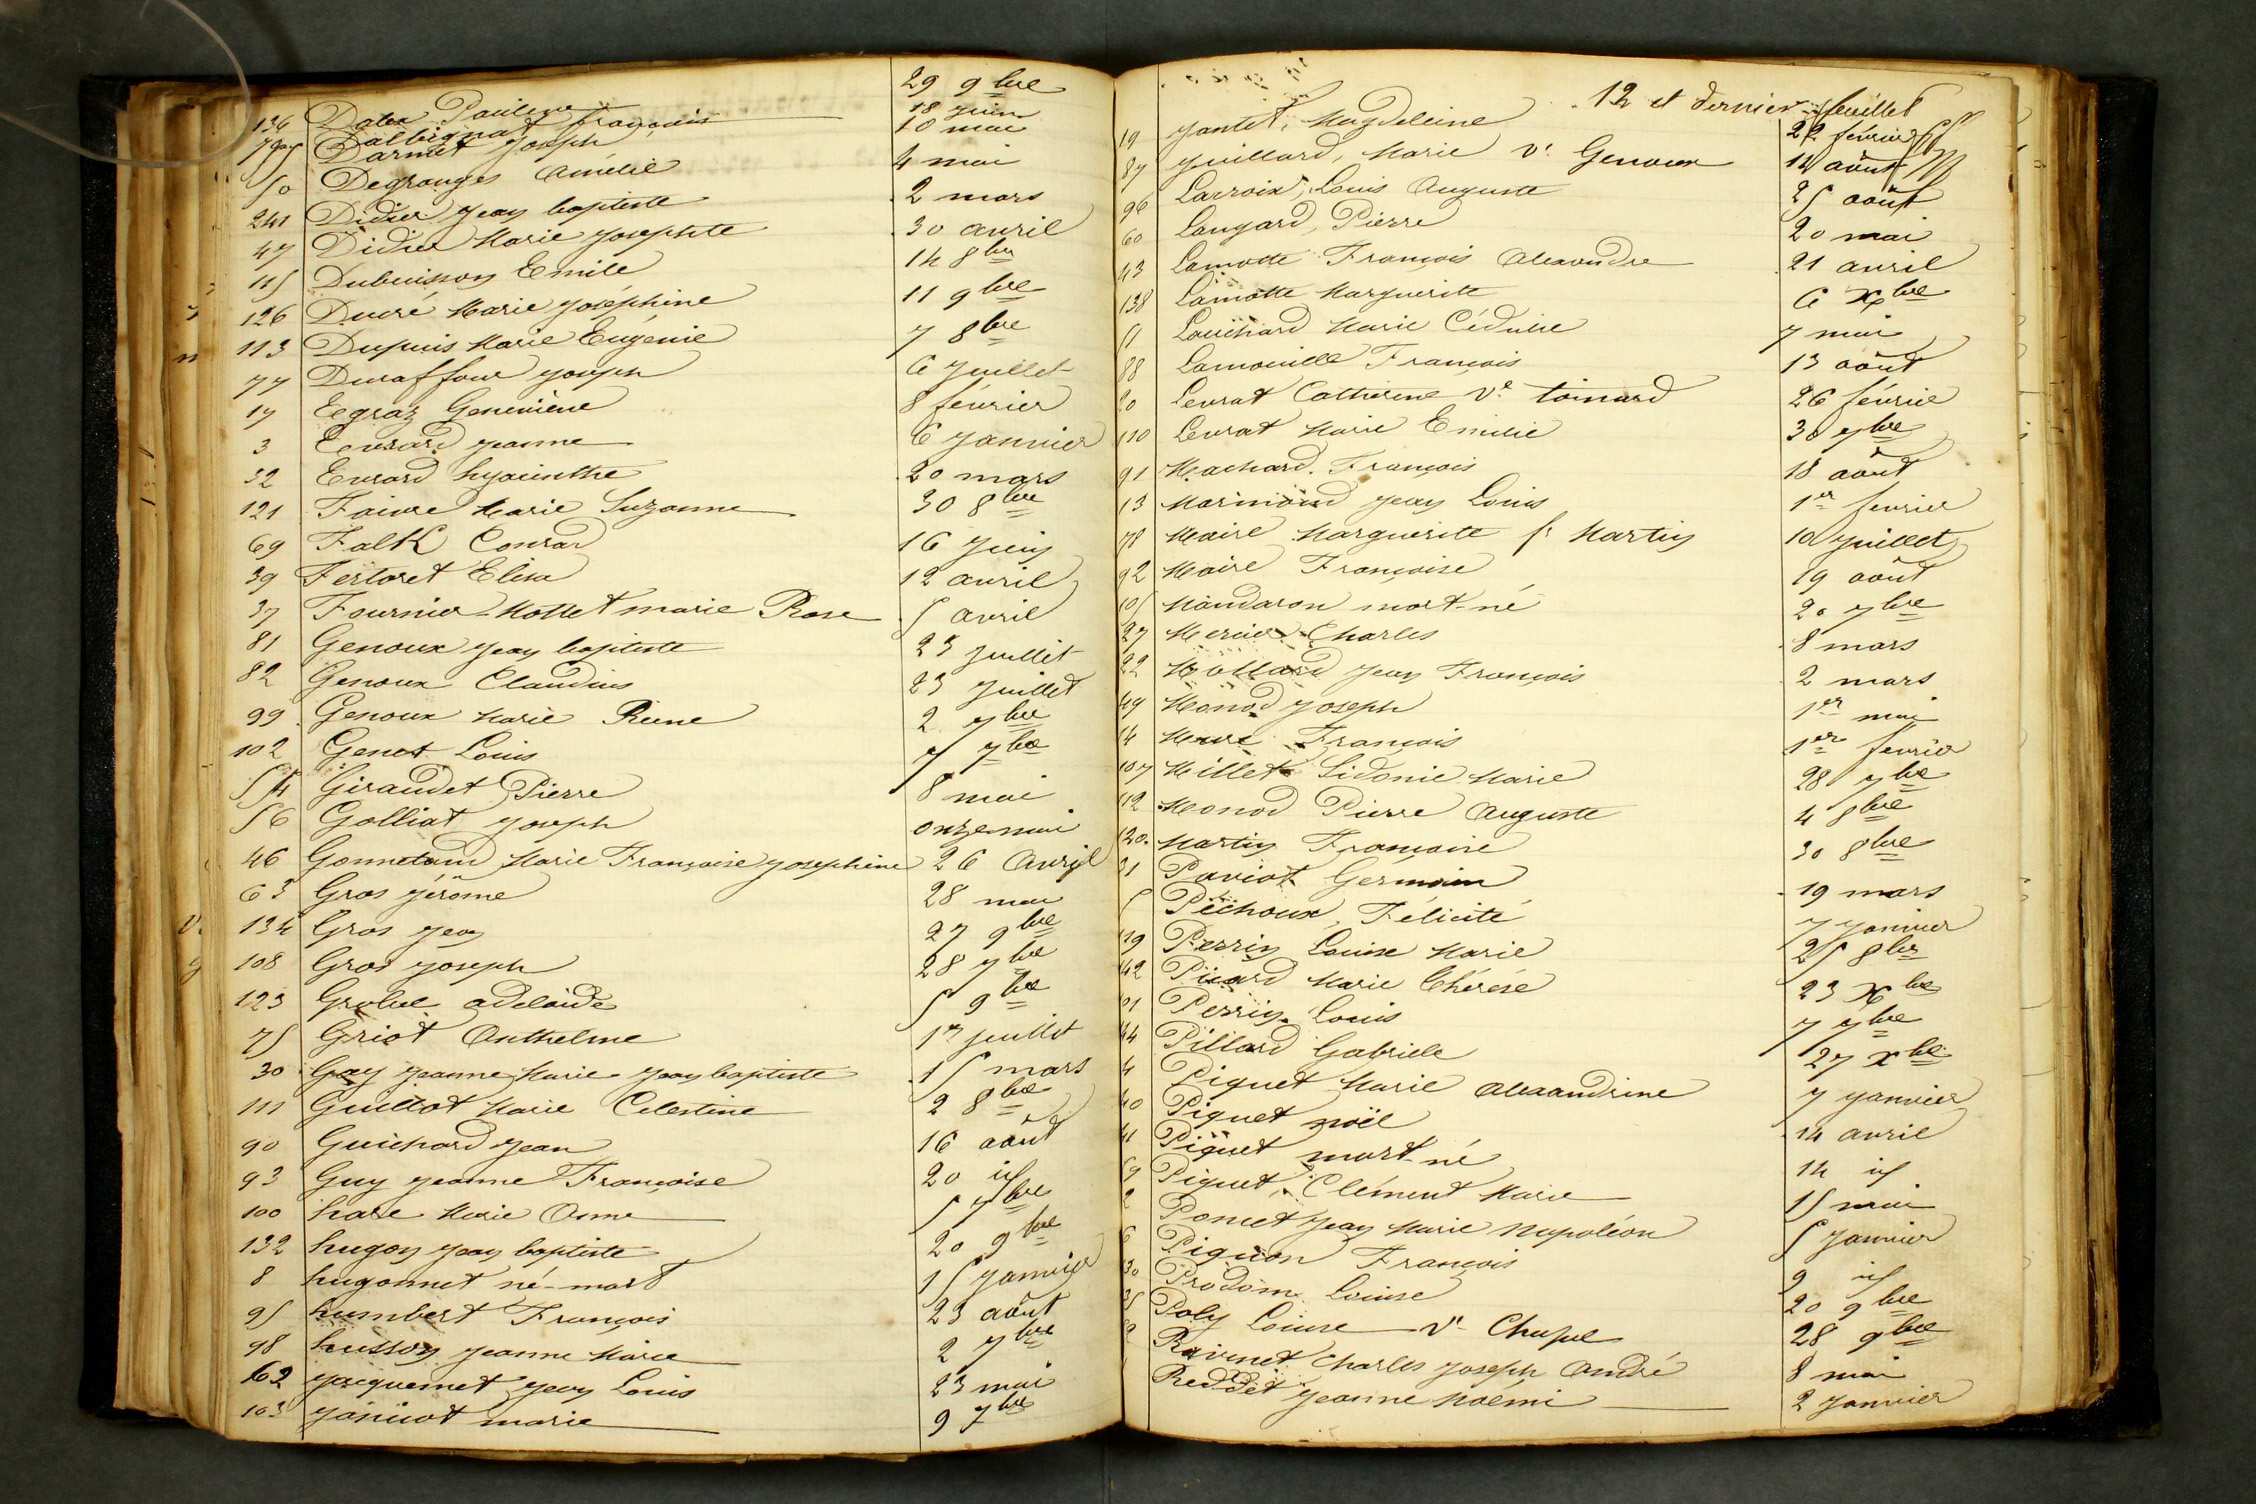 136 Dalex Pauline 29 9bre
70 Dalbignat François 18 juin
55 Darmet Joseph 10 mai
50 Degranges Amélie 4 mai
241 Didier Jean baptiste 2 mars
47 Didier Marie Josephte 30 avril
115 Dubuisson Emile 14 8bre
126 Ducré Marie Joséphine 11 9bre
113 Dupuis Marie Eugénie 7 8bre
77 Duraffour Joseph 6 Juillet
17 Egraz Geneviève 8 février
3 Evrard Jeanne 6 Janvier
32 Evrard hyacinthe 20 mars
121 Faivre Marie Suzanne 30 8bre
69 Falk Conrad 16 Juin
39 Fertoret Elisa 12 avril
37 Fournier Mottet marie Rose 5 avril
81 Genoux Jean baptiste 23 Juillet
82 Genoux Claudius 23 Juillet
99 Genoux Marie Reine 2 7bre
102 Genot Louis 7 7bre
54 Giraudet Pierre 8 mai
56 Golliat Joseph onze mai
46 Marie Françoise Josephine 26 Avril
63 Gros Jérôme 28 mai
134 Gros Jean 27 9bre
108 Gros Joseph 28 7bre
123 Grobel adelaïde 5 9bre
75 Griot Anthelme 1er Juillet
30 Gay Jeanne Marie Jean baptiste 15 mars
111 Guillot Marie Celestine 2 8bre
90 Guichard Jean 16 août
93 Guy Jeanne Françoise 20 id
100 hare Marie Anne 5 7bre
132 hugon Jean baptiste 20 9bre
8 hugonnet né-mort 15 Janvier
95 humbert François 23 août
98 husson Jeanne Marie 2 7bre
162 Jacquemet Jean Louis 23 mai
103 Janicot marie 9 7bre
12 et dernier feuillet
19 Jantet, Magdeleine 22 février
87 Juillard, Marie Ve Genoux 12 août
96 Lacroix, Louis Auguste 25 août
60 Lançard, Pierre 20 mai
43 Lamotte François Alexandre 21 avril
138 Lamotte Marguerite 6 Xbre
51 Louichard Marie Cédulie 7 mai
88 Lamouille François 13 août
20 Levrat Catherine Ve toinard 26 février
110 Levrat Marie Emilie 30 7bre
91 Machard François 18 août
13 Marmond Jean Louis 1er fevrier
78 Maire Marguerite fe Martin 10 Juillet
92 Maire Françoise 19 août
105 Mandaron mort-né 20 7bre
27 Mercier Charles 8 mars
22 Mollard Jean François 2 mars
49 Monod Joseph 1er mai
14 François 1er fevrier
107 Millet Sidonie Marie 28 7bre
112 Monod Pierre Auguste 4 8bre
120 Martin Françoise 30 8bre
31 Paviot Germain 19 mars
5 Péchoux, Félicité 7 Janvier
119 Perrin Louise Marie 25 8bre
142 Picard Marie Thérèse 23 Xbre
101 Perrin Louis 7 7bre
144 Pillard Gabriele 27 xbre
4 Piquet Marie Alexandrine 7 Janvier
40 Piquet noël 14 avril
41 Piquet mort-né 14 id
59 Piquet, Clément Marie 15 mai
2 Poncet Jean Marie Napoléon 5 Janvier
6 Piquon François 9 id
130 Prodom Louise 20 9bre
35 Poly Louise Ve Chapel 28 9bre
Ravinet Charles Joseph André 8 mai
Reddet Jeanne Noémi 2 Janvier